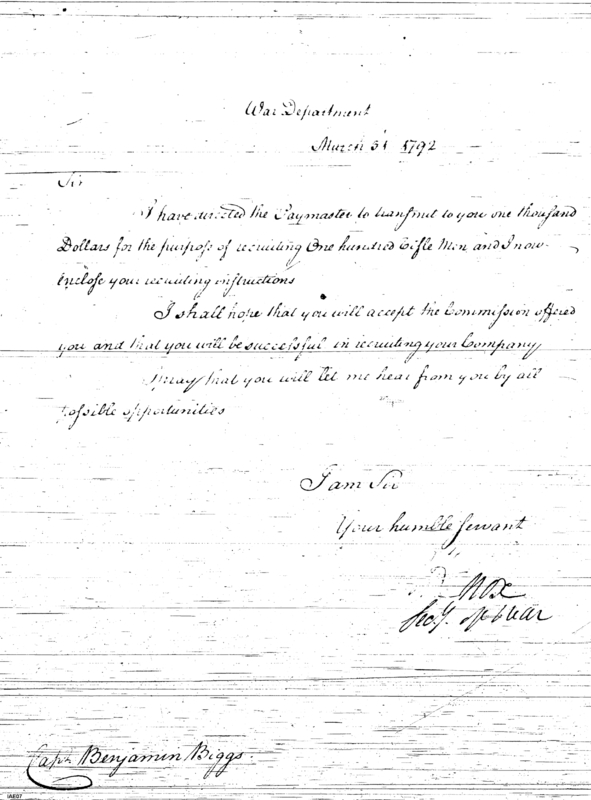 War Department
March 31 1792
Sir
I have directed the Paymaster to transmit to you one thousand
Dollars for the purpose of recruiting One hundred Rifle Men and I now
enclose your recruiting instructions
I shall hope that you will accept the Commission offered
you and that you will be successful in recruiting your Company
I pray that you will let me hear from you by all
possible opportunities
I am Sir
Your humble Servant
Knox
Secy. of War
Capt. Benjamin Biggs